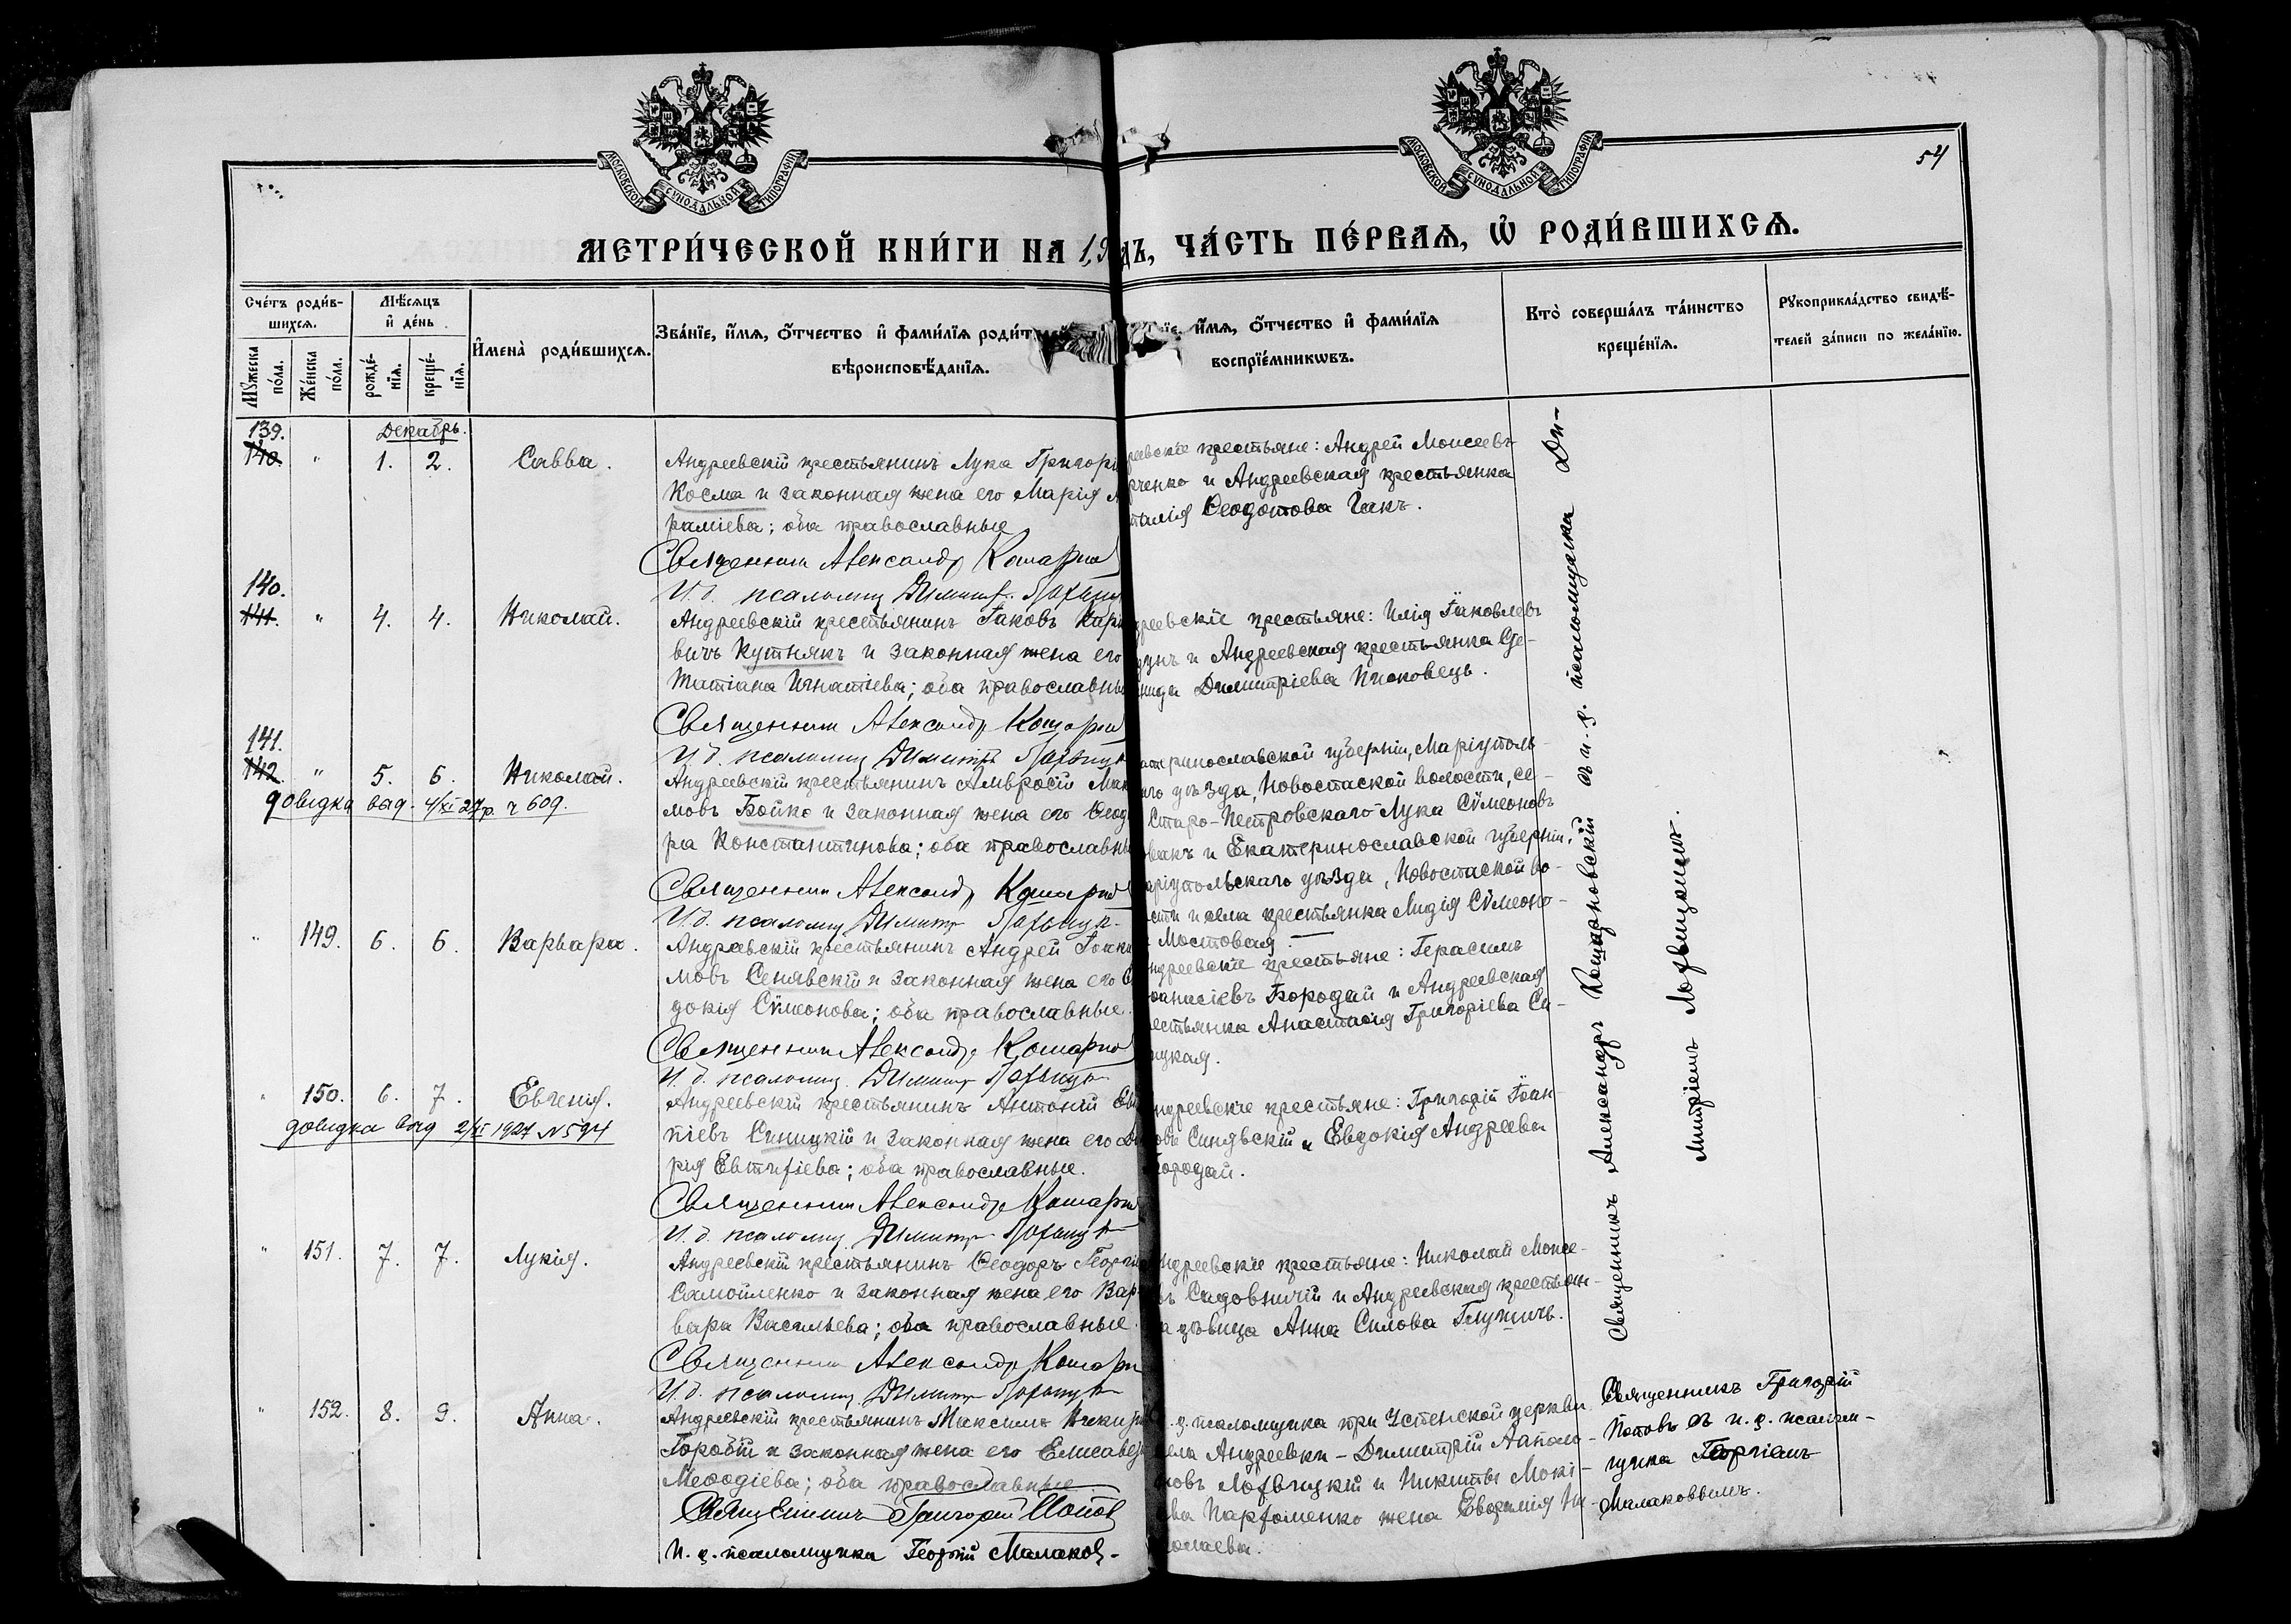 МОСКОВСКОЙ СѴНОДАЛЬНОЙ ТИПОГРАФІИ
МОСКОВСКОЙ СѴНОДАЛЬНОЙ ТИПОГРАФІИ
54
МЕТРИ́ЧЕСКОЙ КНИ́ГИ НА 19 дъ, ЧА́СТЬ ПЕ́РВАѦ, Ѿ РОДИ́ВШИХСѦ.
Сче́тъ роди́в-
шихсѧ.
Мꙋ́жеска по́ла.
Же́нска по́ла.
Мѣ́сѧцъ
и҆ де́нь
рожде́-
нїѧ.
креще́-
нїѧ.
И҆мена̀ роди́вшихсѧ.
Зва́нїе, и҆́мѧ, ѻ҆́тчество и҆ фами́лїѧ роди́т
вѣроисповѣ́данїѧ.
їе, и҆́мѧ, ѻ҆́тчество и҆ фами́лїѧ
воспрїе́мникѡвъ.
Кто̀ соверша́лъ та́инство
креще́нїѧ.
Рꙋкоприкла́дство свидѣ́-
телей за́писи по жела́нїю.
Декабрь.
139.
140. " 1. 2. Савва.
Андреевскій крестьянинъ Лука Григорі
Косма и законная жена его Марія А
раміева; оба православные
Священник Александр Кошарно
И. д. псаломщ Димитр
реевскіе крестьяне: Андрей Моисеевъ
рченко и Андреевская крестьянка
талія Ѳеодотова Гакъ.
140.
141. " 4. 4. Николай.
Андреевскій крестьянинъ Іаковъ Кири
вичъ Кутнякъ и законная жена его
Татіана Игнатіева; оба православны
Священник Александр Кошарно
И. д. псаломщ Димитр
дреевскіе крестьяне: Илія Іаковлевъ
дунъ и Андреевская крестьянка Се-
нида Димитріева Писковецъ.
141.
142. " 5. 6. Николай.
довидка выд. 4/XI 27 р. ч 609.
Андреевскій крестьянинъ Амвросій Мак
мовъ Бойко и законная жена его Ѳеод
ра Константинова; оба православны
Священник Александр Кошарно
И. д. псаломщ Димитр
атеринославской губерніи, Маріуполь-
аго уѣзда, Новоспаской волости, се-
Старо-Петровскаго Лука Сѵмеоновъ
овакъ и Екатеринославской губерніи,
аріупольскаго уѣзда, Новоспаской во-
сти и села крестьянка Лидія Сѵмеоно-
Мостовая.
" 149. 6. 6. Варвара.
Андреевскій крестьянинъ Андрей Іоаки
мовъ Сенявскій и законная жена его Е
докія Сѵмеонова; оба православные.
Священник Александр Кошарно
И. д. псаломщ Димитр
ндреевскіе крестьяне: Герасимъ
ѳанасіевъ Бородай и Андреевская
естьянка Анастасія Григоріева Си-
ицкая.
" 150. 6. 7. Евгенія.
довидка выд 2/XI 1927 N 594
Андреевскій крестьянинъ Антоній Евт
піевъ Синицкій и законная жена его Да
рія Евтихіева; оба православные.
Священник Александр Кошарно
И. д. псаломщ. Димитр
ндреевскіе крестьяне: Григорій Іоан-
овъ Синявскій и Евдокія Андреева
Бородай.
" 151. 7. 7. Лукія.
Андреевскій крестьянинъ Ѳеодоръ Георгі
Самойленко и законная жена его Вар-
вара Васильева; оба православные.
Священник Александр Кошарно
И. д. псаломщ. Димитр
ндреевскіе крестьяне: Николай Моисе-
въ Садовничій и Андреевская крестьян-
а дѣвица Анна Силова Глушичъ.
" 152. 8. 9. Анна.
Андреевскій крестьянинъ Максимъ Никиф
Горобій и законная жена его Елисавет
Меѳодіева; оба православные.
Священникъ Григорій Попов
И. д. псаломщика Георгій Малаков-
д. псаломщика при Успенской церкви
ела Андреевки - Димитрій Аполо-
новъ Лофвицкій и Никиты Мокі-
ева Парфоменко жена Евфимія Ни-
колаева.
Священникъ Александръ Кошарновскій съ и. д. псаломщика Ди-
митріемъ Лофвицкимъ.
Священникъ Григорій
Поповъ съ и. д. псалом-
щика Георгіемъ
Малаковымъ.